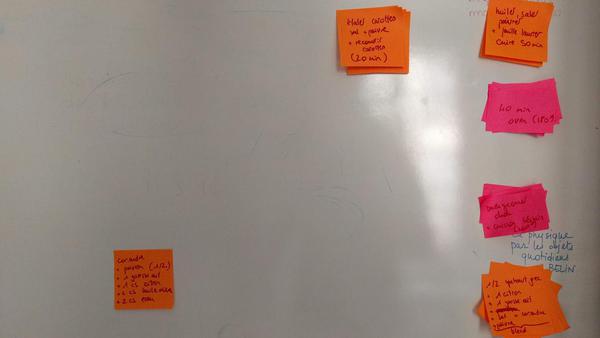 huiler carottes
sel + poivre
+ recouvrir
carottes
(20 min)
huiler, saler
poivrer
+ feuille laurier
cuire 50 min
40 min
four (180°)
+ cuisson
physique
par les objets
quotidiens
BELIN
coriandre
+ poivron (1/2)
+ 1 gousse ail
+ 1 cs citron
+ 2 cs huile olive
+ 2 cs eau
1/2 yahourt grec
+ 1 citron
+ 1 gousse ail
+ sel + coriandre
+ poivre
blend